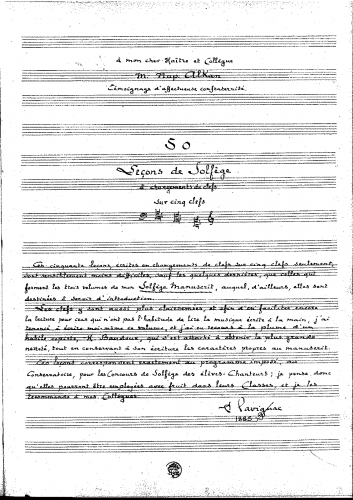 à mon cher Maître et Collègue
M. Nap. Alkan
Témoignage d'affectueuse confraternité.
50
Leçons de Solfège
à changements de clefs
sur cinq clefs
Ces cinquante leçons, écrites en changements de clefs sur cinq clefs seulement,
sont sensiblement moins difficiles, sauf les quelques dernières, que celles qui
forment les trois volumes de mon Solfège Manuscrit, auquel, d'ailleurs, elles sont
destinées à servir d'introduction.
Les clefs y sont aussi plus clairsemées, et afin d'en faciliter encore
la lecture pour ceux qui n'ont pas l'habitude de lire la musique écrite à la main, j'ai
renoncé à écrire moi-même ce volume, et j'ai eu recours à la plume d'un
habile copiste, M. Baudoux, qui s'est attaché à obtenir la plus grande
netteté, tout en conservant à son écriture les caractères propres au manuscrit.
Ces leçons correspondent exactement au programme imposé, au
Conservatoire, pour les Concours de Solfège des élèves-Chanteurs; je pense donc
qu'elles pourront être employées avec fruit dans leurs Classes, et je les
recommande à mes Collègues.
A. Lavignac
1885